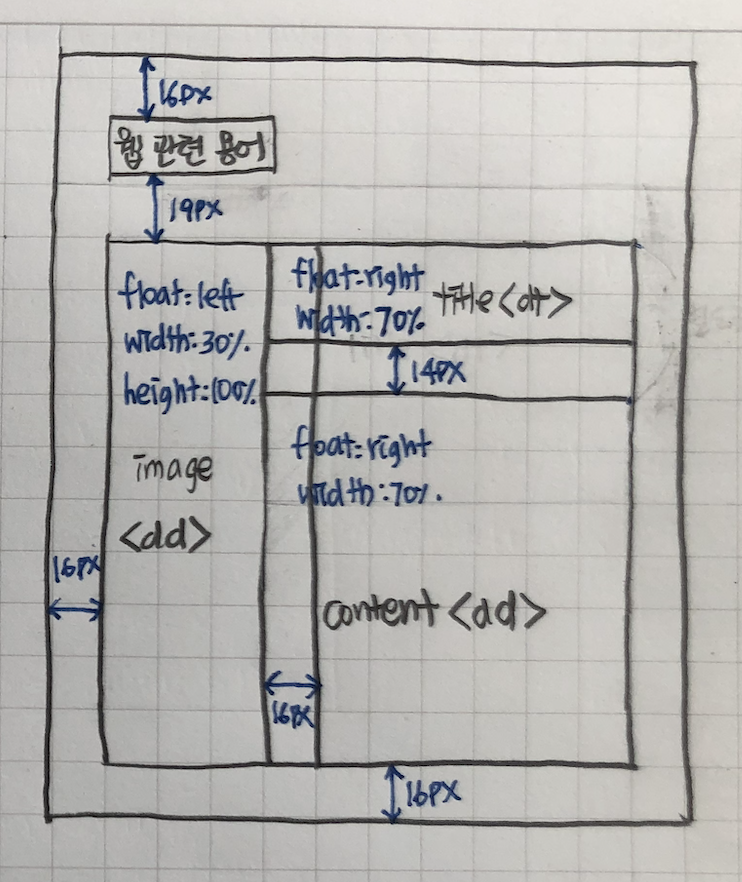 16px
웹 관련 용어
19px
float:left
width:30%.
height:100%.
image
<dd>
float:right
width:70%.
title<dt>
14px
float:right
width:70%.
content<dd>
16px
16px
16px